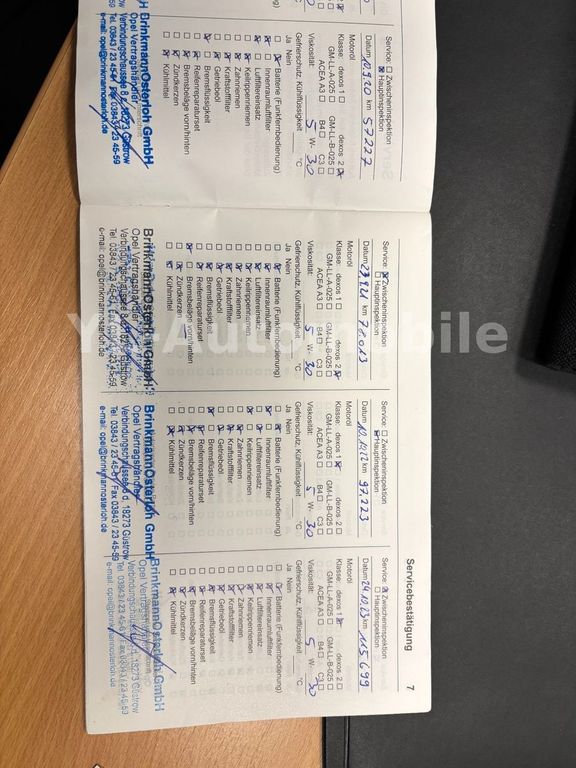 Servicebestätigung 7
Service: Zwischeninspektion
Hauptinspektion
Datum 10.9.20 km 57227
Motoröl
Klasse: dexos 1 dexos 2
GM-LL-A-025 GM-LL-B-025
ACEA A3 B4 C3
Viskosität: 5 W- 30
Gefrierschutz, Kühlflüssigkeit °C
Ja Nein
Batterie (Funkfernbedienung)
Innenraumluftfilter
Luftfiltereinsatz
Keilrippenriemen
Zahnriemen
Kraftstofffilter
Getriebeöl
Bremsflüssigkeit
Reifenreparaturset
Bremsbeläge vorn/hinten
Zündkerzen
Kühlmittel
BrinkmannOsterloh GmbH
Opel Vertragshändler
Verbindungschaussee 8, 18273 Güstrow
e-mail: opel@brinkmannosterloh.de
Service: Zwischeninspektion
Hauptinspektion
Datum km
Motoröl
Klasse: dexos 1 dexos 2
GM-LL-A-025 GM-LL-B-025
ACEA A3 B4 C3
Viskosität: 5 W- 30
Gefrierschutz, Kühlflüssigkeit °C
Ja Nein
Batterie (Funkfernbedienung)
Innenraumluftfilter
Luftfiltereinsatz
Keilrippenriemen
Zahnriemen
Kraftstofffilter
Getriebeöl
Bremsflüssigkeit
Reifenreparaturset
Bremsbeläge vorn/hinten
Zündkerzen
Kühlmittel
BrinkmannOsterloh GmbH
Opel Vertragshändler
Service: Zwischeninspektion
Hauptinspektion
Datum 10.10.22 km 97.223
Motoröl
Klasse: dexos 1 dexos 2
GM-LL-A-025 GM-LL-B-025
ACEA A3 B4 C3
Viskosität: 5 W- 30
Gefrierschutz, Kühlflüssigkeit °C
Ja Nein
Batterie (Funkfernbedienung)
Innenraumluftfilter
Luftfiltereinsatz
Keilrippenriemen
Zahnriemen
Kraftstofffilter
Getriebeöl
Bremsflüssigkeit
Reifenreparaturset
Bremsbeläge vorn/hinten
Zündkerzen
Kühlmittel
BrinkmannOsterloh GmbH
Opel Vertragshändler
e-mail: opel@brinkmannosterloh.de
Service: Zwischeninspektion
Hauptinspektion
Datum 24.10.23 km 115.699
Motoröl
Klasse: dexos 1 dexos 2
GM-LL-A-025 GM-LL-B-025
ACEA A3 B4 C3
Viskosität: 5 W- 30
Gefrierschutz, Kühlflüssigkeit °C
Ja Nein
Batterie (Funkfernbedienung)
Innenraumluftfilter
Luftfiltereinsatz
Keilrippenriemen
Zahnriemen
Kraftstofffilter
Getriebeöl
Bremsflüssigkeit
Reifenreparaturset
Bremsbeläge vorn/hinten
Zündkerzen
Kühlmittel
BrinkmannOsterloh GmbH
Opel Vertragshändler
e-mail: opel@brinkmannosterloh.de